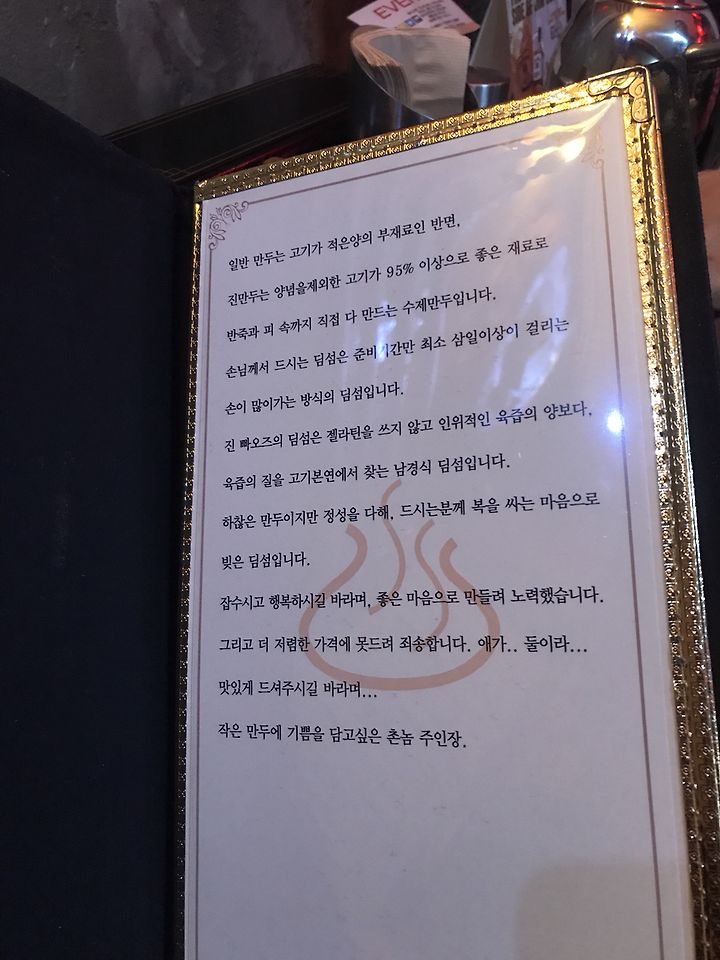 EVE
일반 만두는 고기가 적은양의 부재료인 반면,
진만두는 양념을제외한 고기가 95% 이상으로 좋은 재료로
반죽과 피 속까지 직접 다 만드는 수제만두입니다.
손님께서 드시는 딤섬은 준비기간만 최소 삼일이상이 걸리는
손이 많이가는 방식의 딤섬입니다.
진 빠오즈의 딤섬은 젤라틴을 쓰지 않고 인위적인 육즙의 양보다,
육즙의 질을 고기본연에서 찾는 남경식 딤섬입니다.
하찮은 만두이지만 정성을 다해, 드시는분께 복을 싸는 마음으로
빚은 딤섬입니다.
잡수시고 행복하시길 바라며, 좋은 마음으로 만들려 노력했습니다.
그리고 더 저렴한 가격에 못드려 죄송합니다. 애가.. 둘이라...
맛있게 드셔주시길 바라며...
작은 만두에 기쁨을 담고싶은 촌놈 주인장.